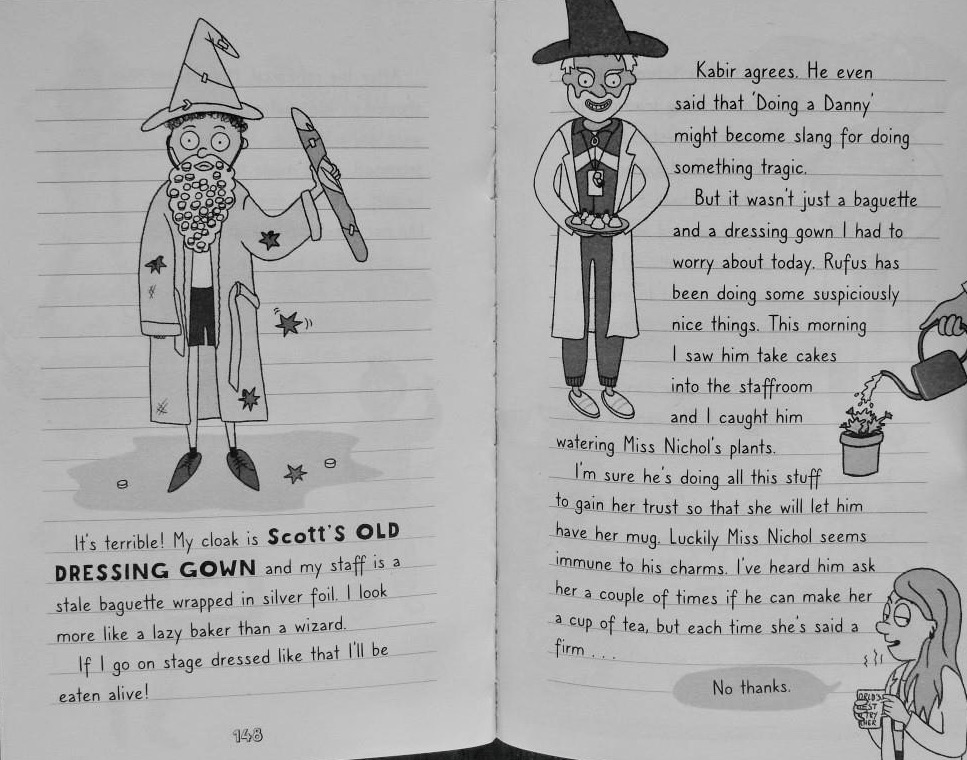 It's terrible! My cloak is Scott'S OLD
DRESSING GOWN and my staff is a
stale baguette wrapped in silver foil. I look
more like a lazy baker than a wizard.
If I go on stage dressed like that I'll be
eaten alive!
148
Kabir agrees. He even
said that 'Doing a Danny'
might become slang for doing
something tragic.
But it wasn't just a baguette
and a dressing gown I had to
worry about today. Rufus has
been doing some suspiciously
nice things. This morning
I saw him take cakes
into the staffroom
and I caught him
watering Miss Nichol's plants.
I'm sure he's doing all this stuff
to gain her trust so that she will let him
have her mug. Luckily Miss Nichol seems
immune to his charms. I've heard him ask
her a couple of times if he can make her
a cup of tea, but each time she's said a
firm . . .
No thanks.